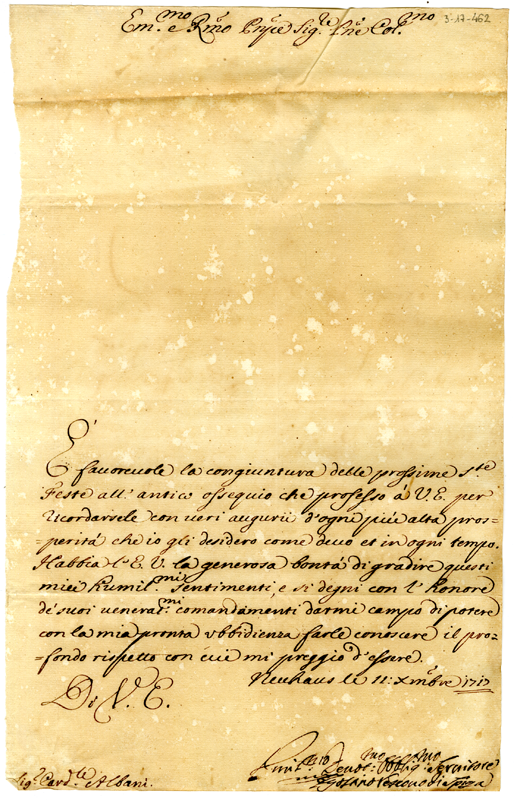 3-17-462
Em.mo e Rmo Pnpe Sig.re Pne Col.mo
È favorevole la congiuntura delle prossime Ste
Feste all' antico ossequio che professo à V.E. per
ricordarsele con veri augurii d'ogni più alta pros=
=perità che io gli desidero come devo et in ogni tempo.
Habbia l'E.V. la generosa bontà di gradire questi
miei humil.mi Sentimenti, e si degni con l'honore
de' suoi venerat.mi comandamenti darmi campo di potere
con la mia pronta ubbidienza farle conoscere il pro=
=fondo rispetto con cui mi preggio d'essere.
Neuhaus le 11: Xmbre 1717
Di V. E.
Devot:mo Obblig.mo Servitore
Sig.r Card.le Albani.